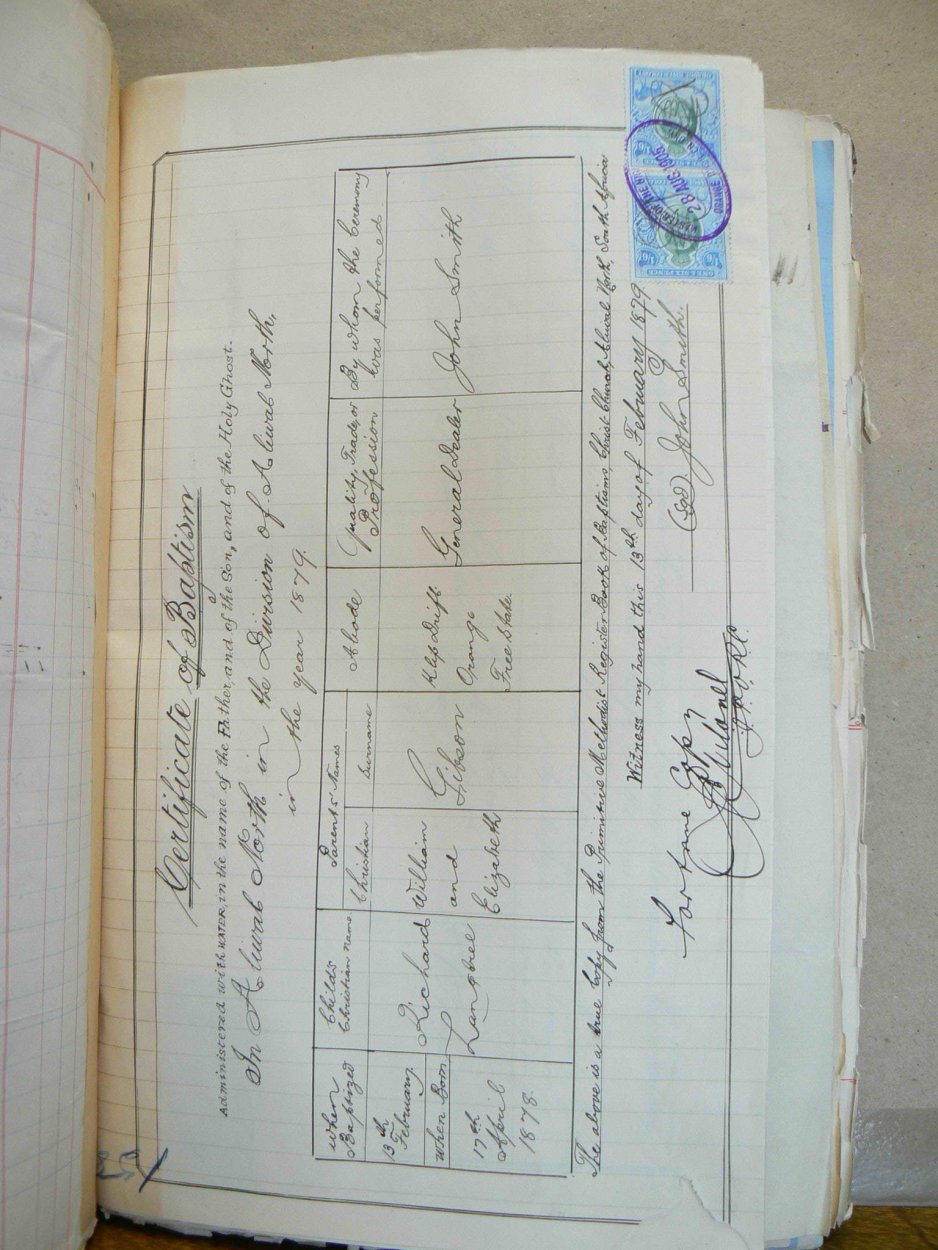 Certificate of Baptism
Administered with WATER, in the name of the Father, and of the Son, and of the Holy Ghost.
In Aliwal North in the Division of Aliwal North,
in the year 1879.
When Baptized
Child's Christian name
Parents' Names
Christian
Surname
Abode
Quality, Trade, or Profession
By whom the Ceremony was performed
13th February.
When Born
17th April 1878.
Richard
William and Elizabeth
Gibson
Klip Drift Orange Free State.
General Dealer
John Smith
The above is a true copy from the Primitive Methodist Register Book of Baptisms Christ Church, Aliwal North, South Africa
Witness my hand this 13th day of February 1879
(sgd) John Smith.
for true Copy
ONE & SIX PENCE
1/6
28 AUG 1906
ORANGE